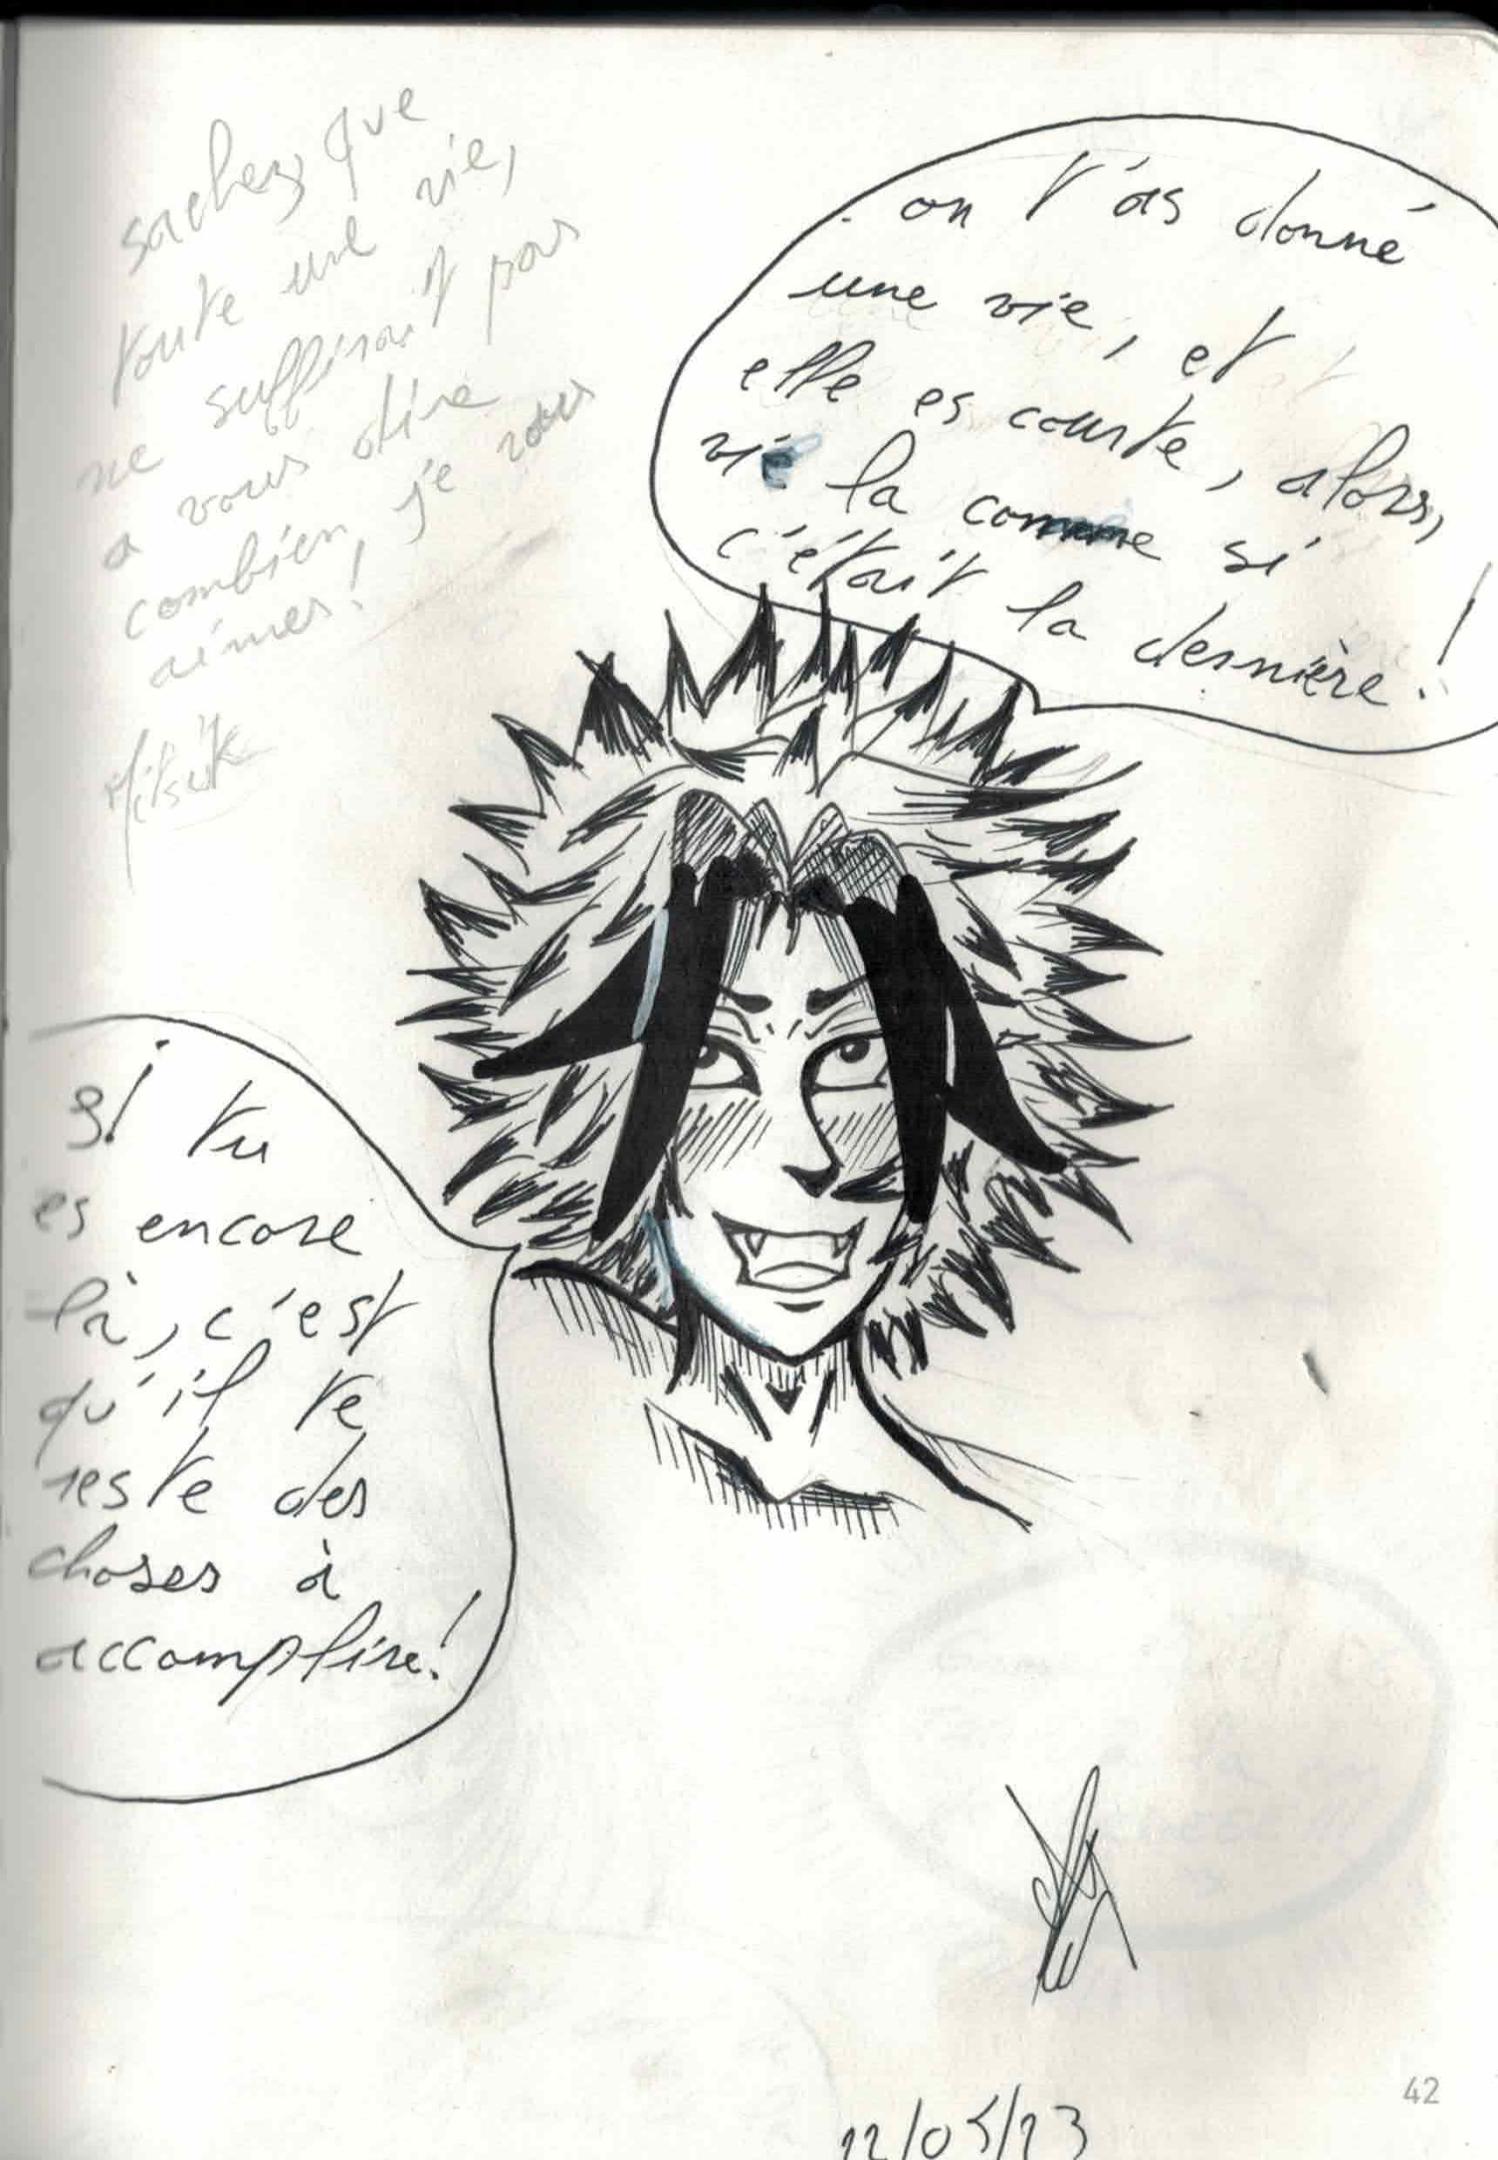 sachez que
toute une vie,
ne suffirait pas
a vous dire
combien, je vous
aimes!
Mitsuk
on t'as donné
une vie, et
elle es courte, alors,
vie la comme si
c'était la dernière!
Si tu
es encore
là, c'est
qu'il te
reste des
choses à
accomplire!
42
12/05/23